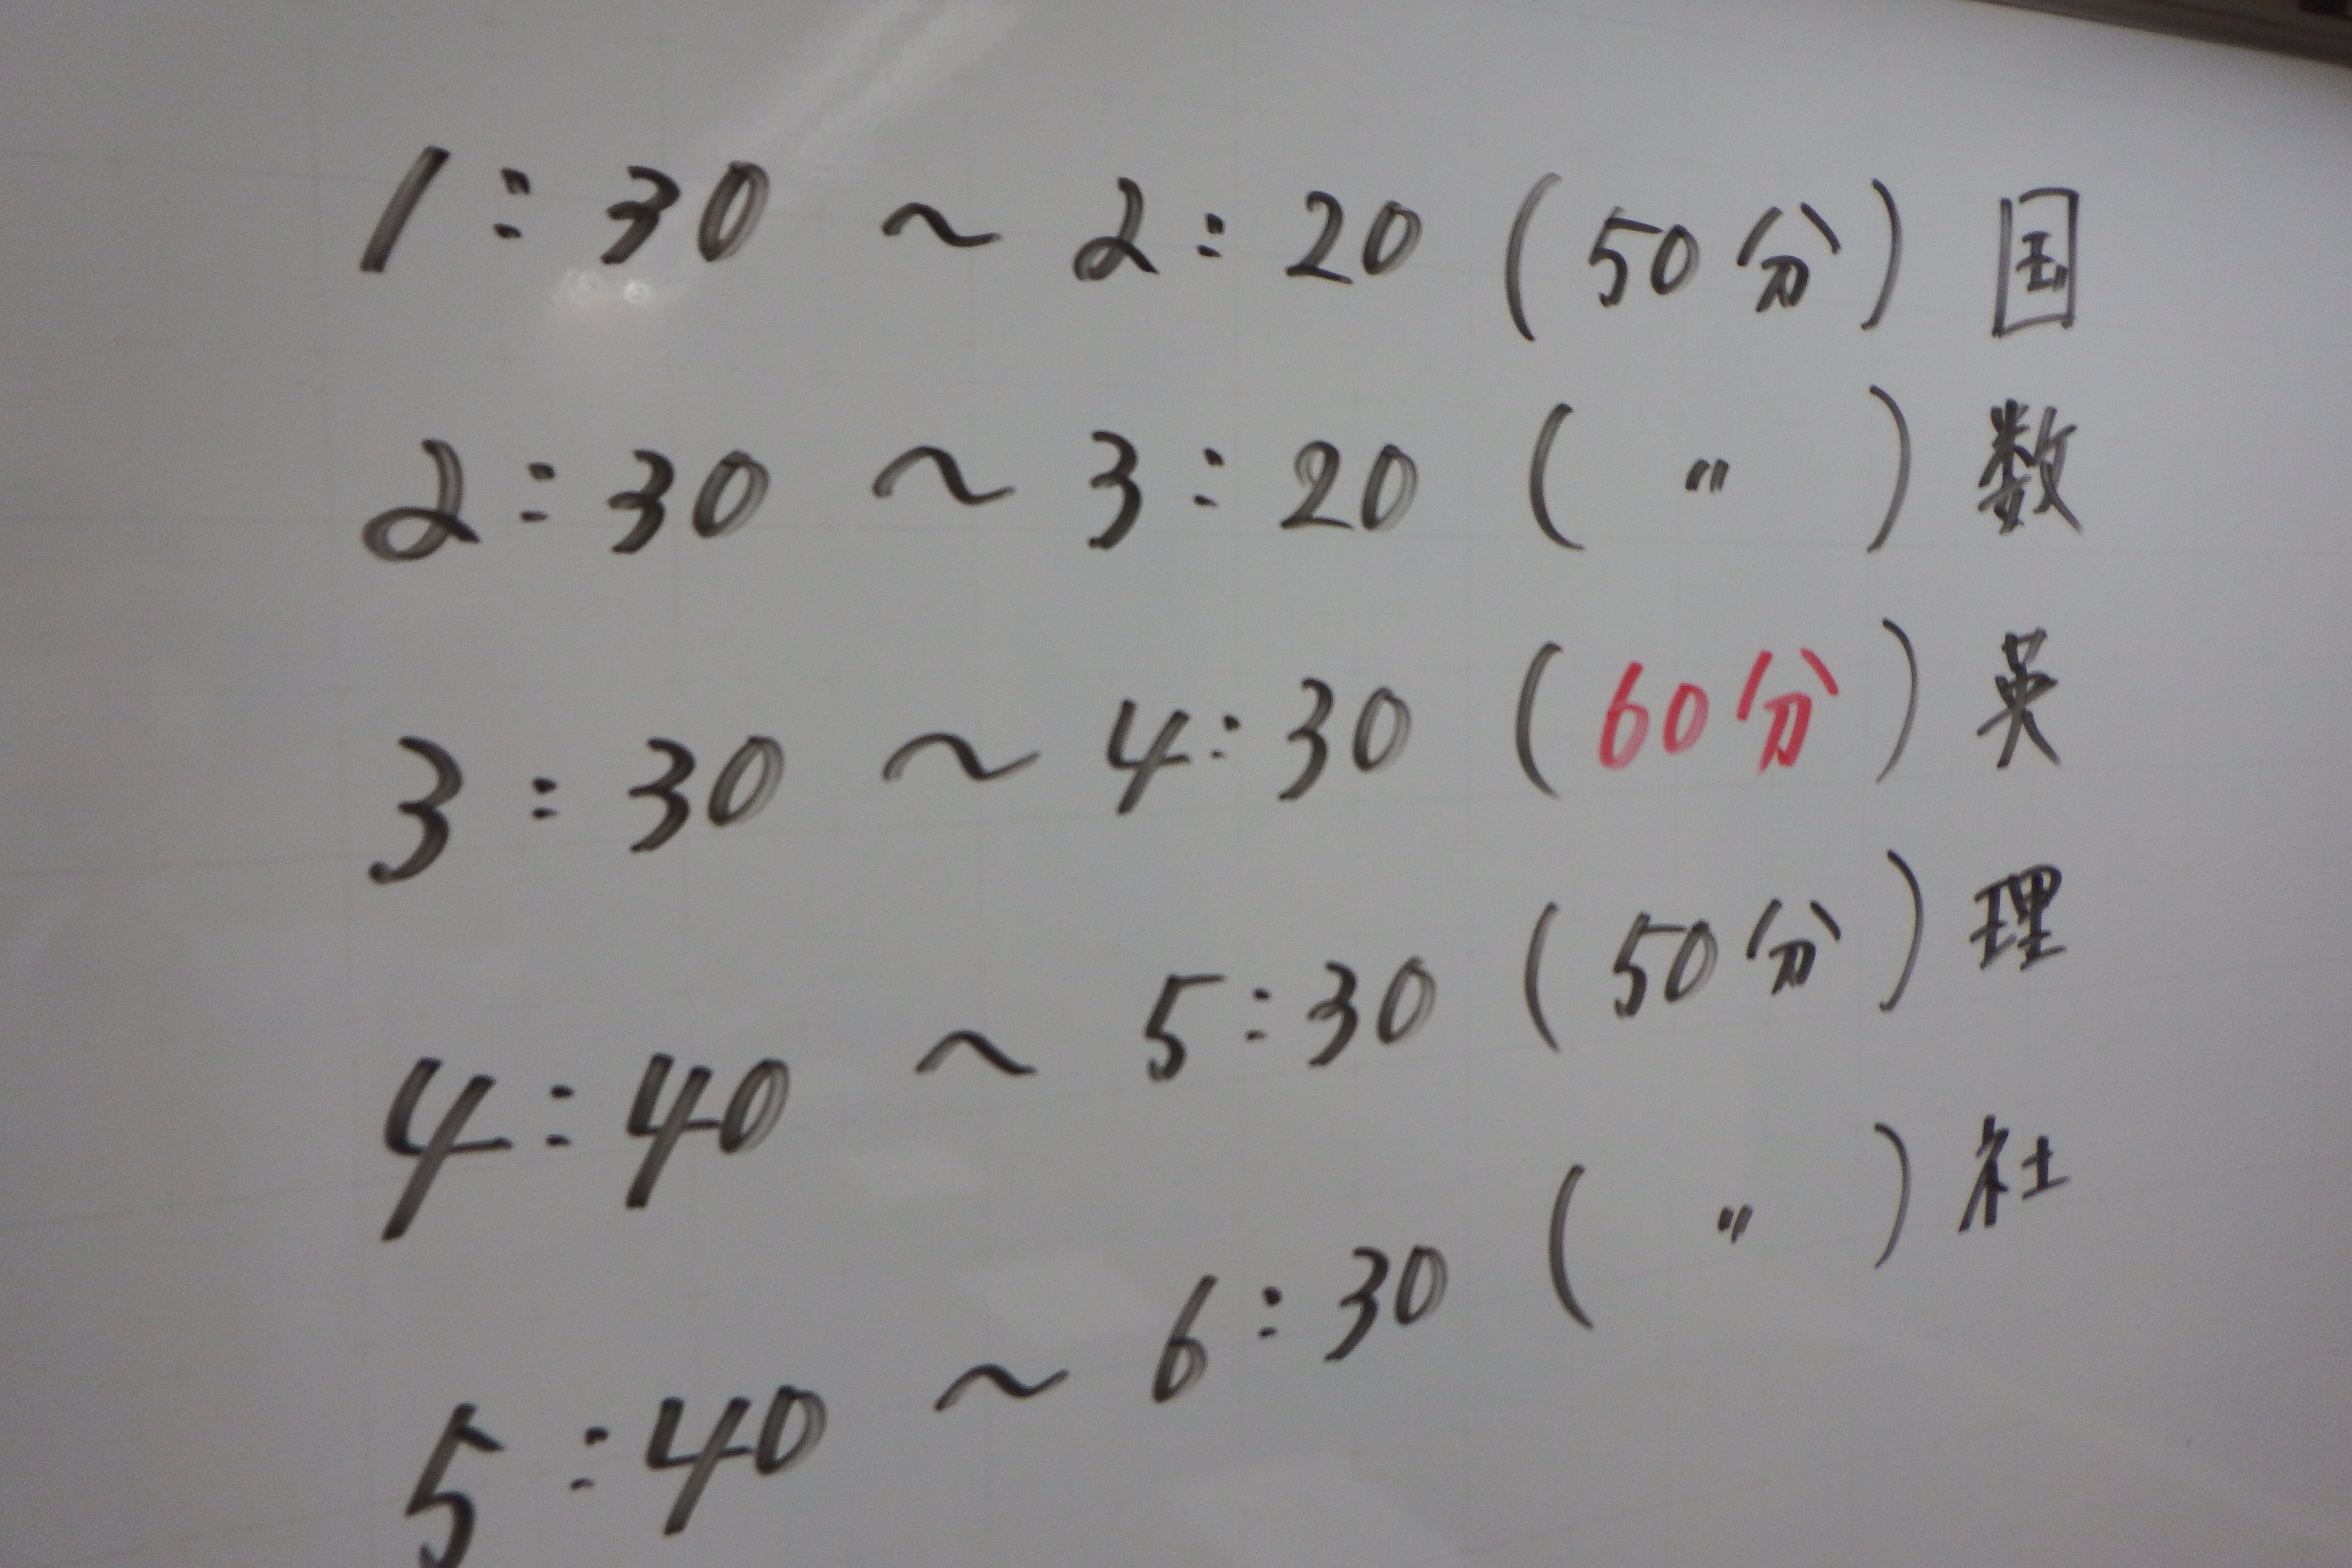 1:30 ~ 2:20 (50分) 国
2:30 ~ 3:20 ( 〃 ) 数
3:30 ~ 4:30 (60分) 英
4:40 ~ 5:30 (50分) 理
5:40 ~ 6:30 ( 〃 ) 社